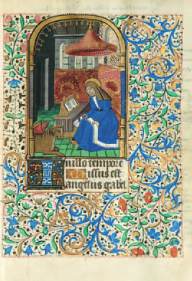 In illo tempore
Missus est
angelus gab̃el